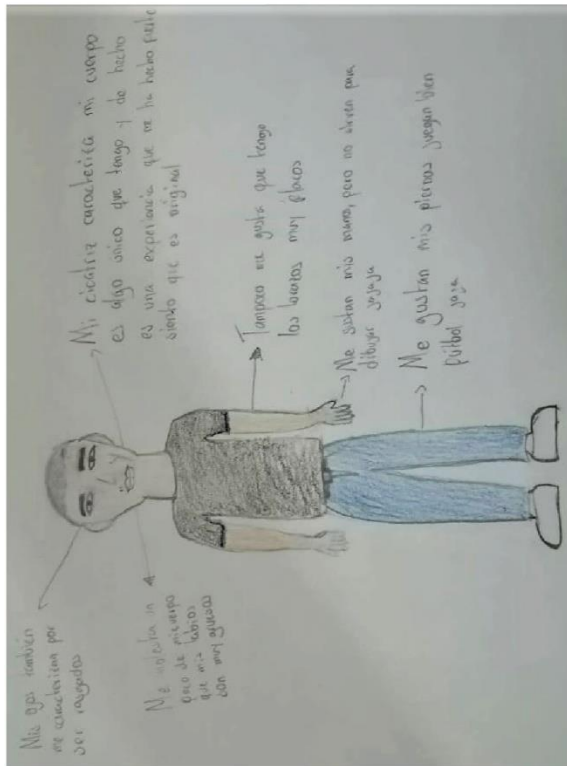 Mis ojos también
me caracterizan por
ser rasgados
Me molesta un
poco de mi cuerpo
que mis labios
son muy gruesos
Mi cicatriz caracteriza mi cuerpo
es algo único que tengo y de hecho
es una experiencia que me ha hecho fuerte
siento que es original
Tampoco me gusta que tengo
los brazos muy flacos
Me gustan mis manos, pero no sirven para
dibujar jajaja
Me gustan mis piernas juegan bien
fútbol jaja